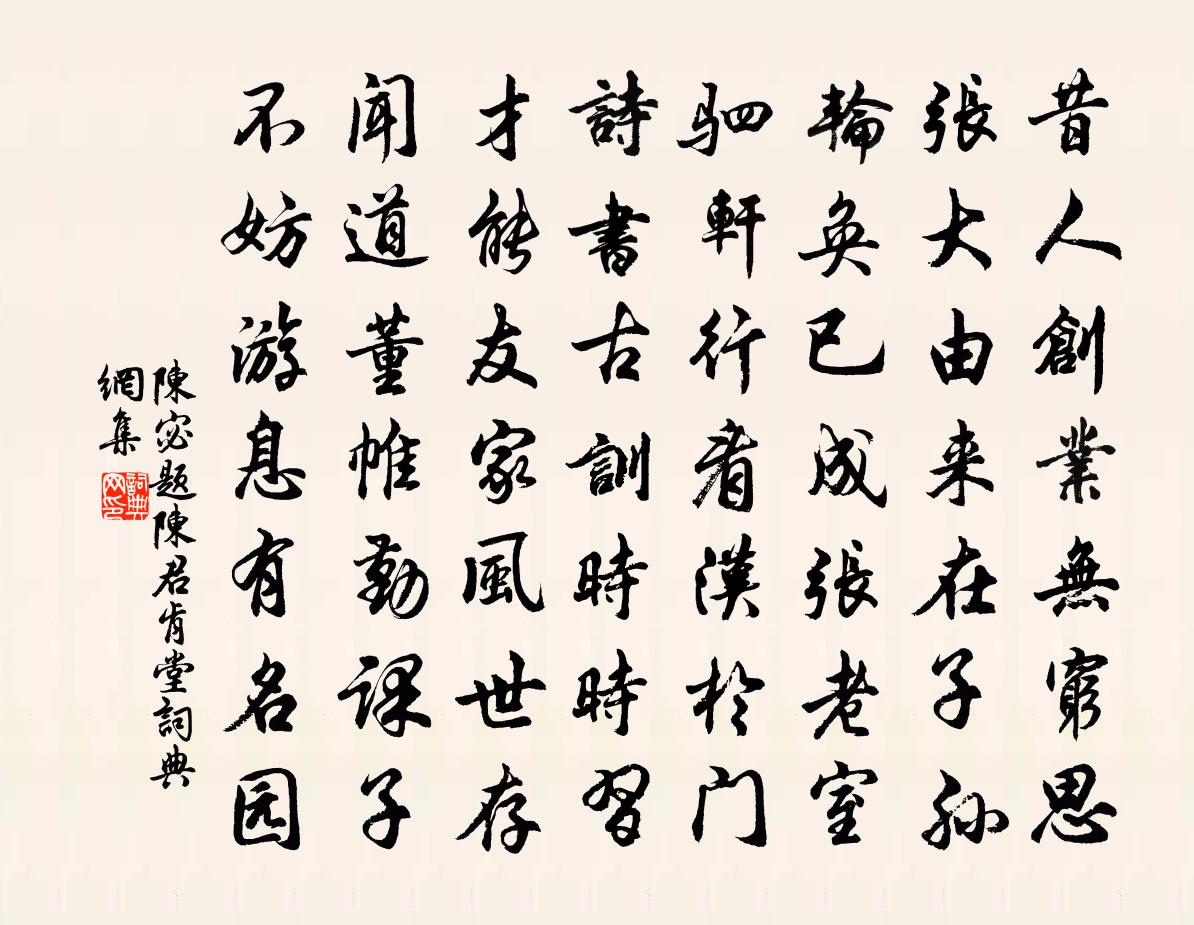 昔人創業無窮思
張大由来在子孫
輪奐已成張老室
驷軒行看漢於门
詩書古訓時時習
才能友家風世存
闻道董帷勤課子
不妨游息有名园
陳宓題陳君肯堂詞典
網集
詞典网印